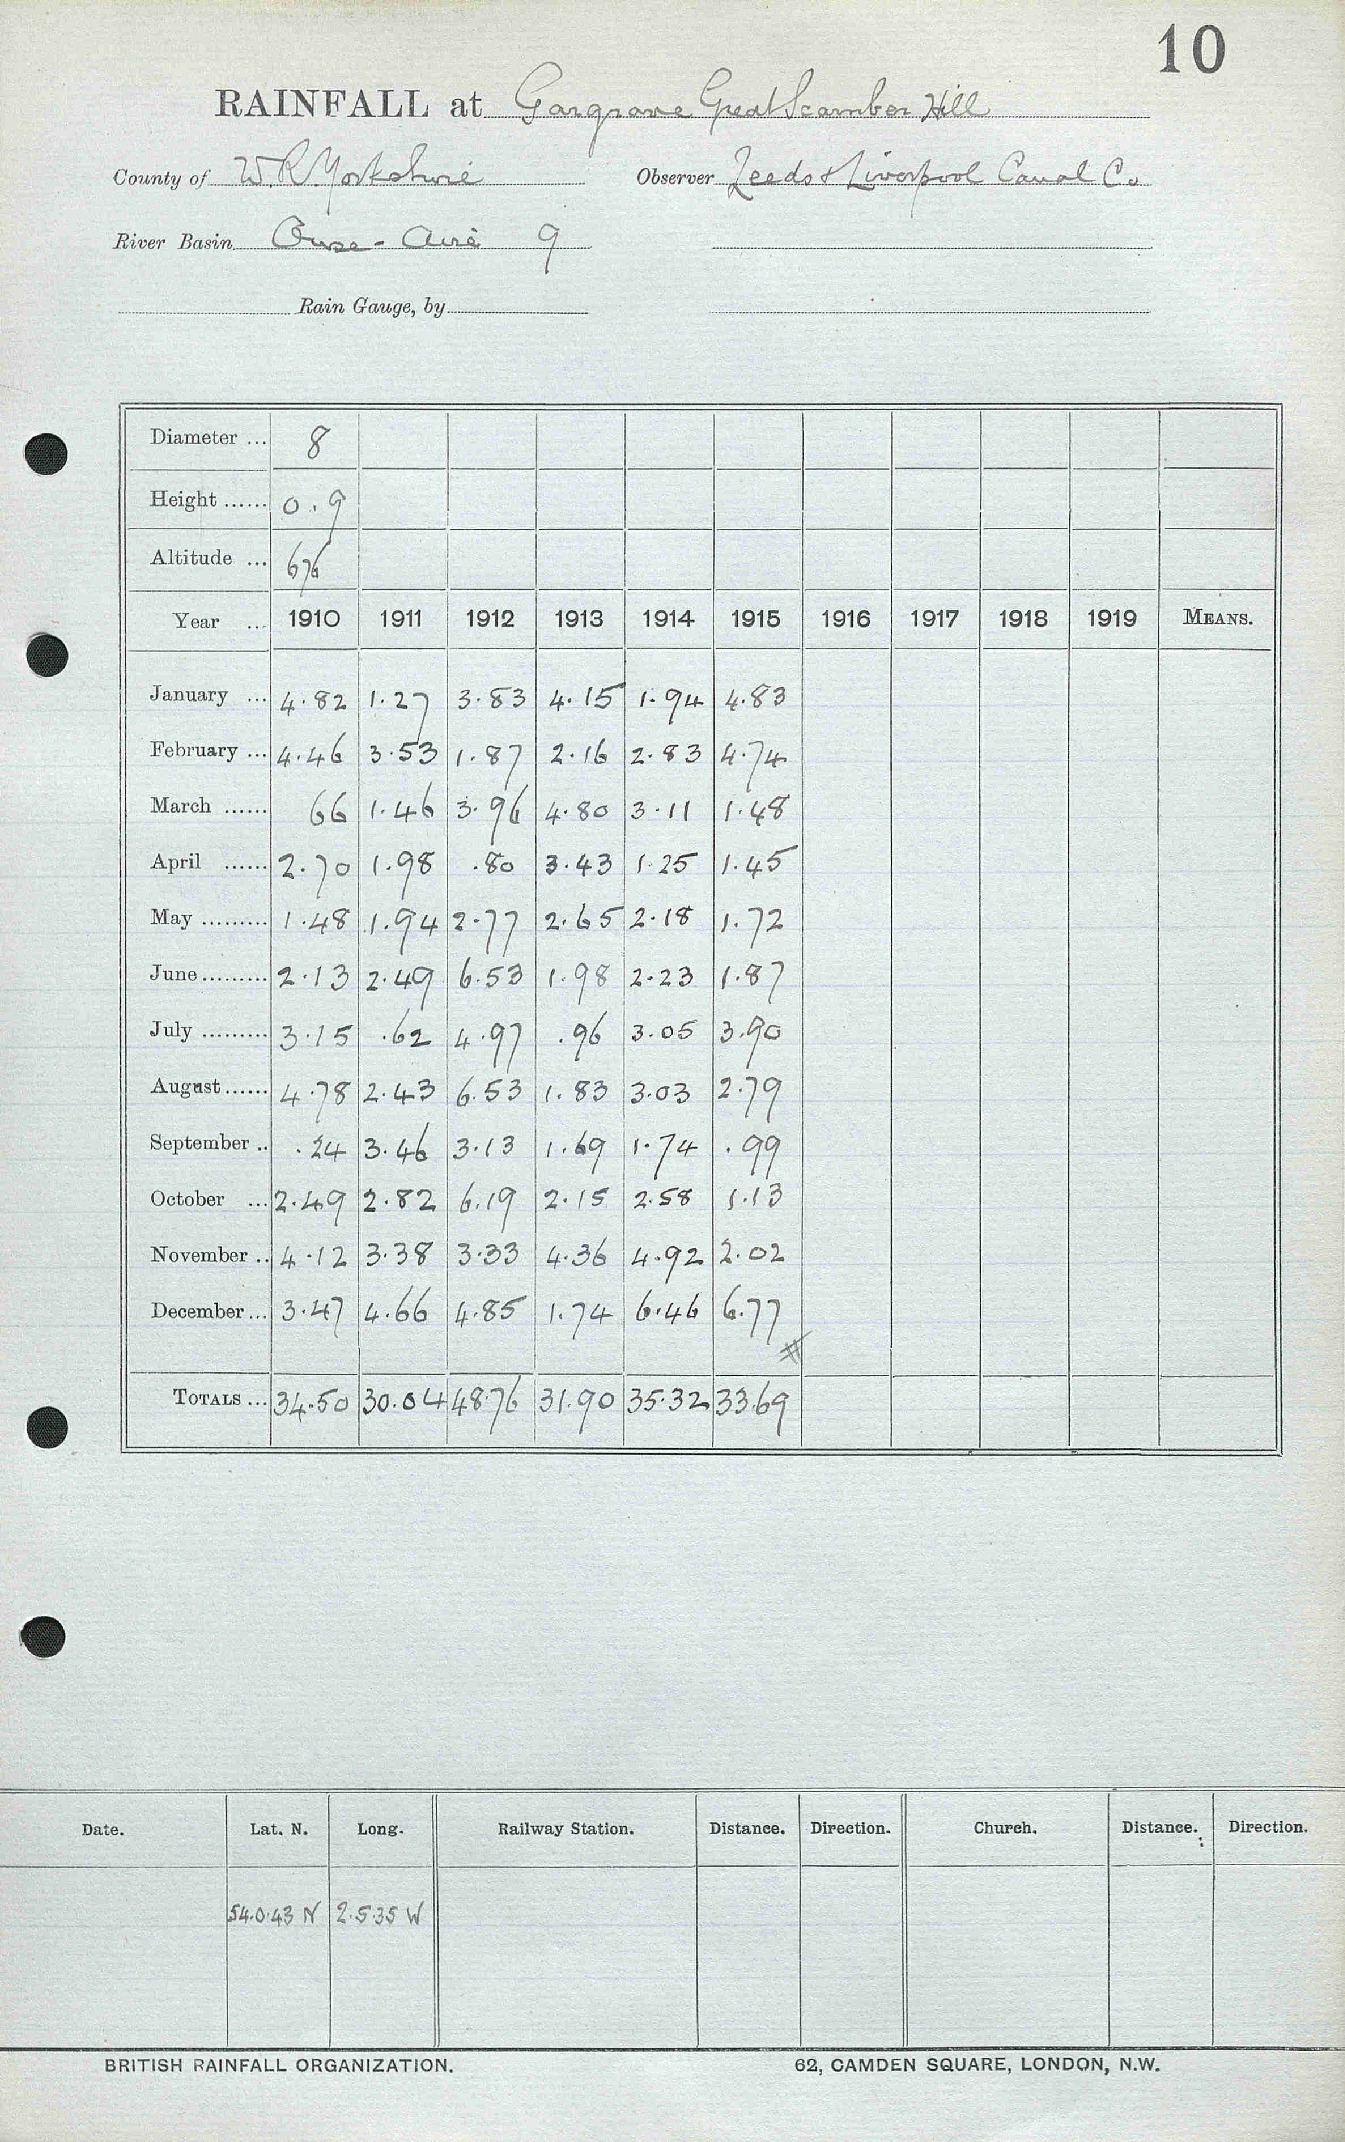 10
RAINFALL at Gargrave Great Scamber Hill
County of W.R. Yorkshire Observer Leeds & Liverpool Canal Co
River Basin Ouse - Aire 9
Rain Gauge, by
Diameter ... 8
Height ...... 0.9
Altitude ... 676
Year ... 1910 1911 1912 1913 1914 1915 1916 1917 1918 1919 MEANS.
January ... 4.82 1.27 3.83 4.15 1.94 4.83
February ... 4.46 3.53 1.87 2.16 2.83 4.74
March ...... 66 1.46 3.96 4.80 3.11 1.48
April ...... 2.70 1.98 .80 3.43 1.25 1.45
May ......... 1.48 1.94 2.77 2.65 2.18 1.72
June ......... 2.13 2.49 6.53 1.98 2.23 1.87
July ......... 3.15 .62 4.97 .96 3.05 3.90
August ...... 4.78 2.43 6.53 1.83 3.03 2.79
September .. .24 3.46 3.13 1.69 1.74 .99
October ... 2.49 2.82 6.19 2.15 2.58 1.13
November .. 4.12 3.38 3.33 4.36 4.92 2.02
December ... 3.47 4.66 4.85 1.74 6.46 6.77
#
TOTALS ... 34.50 30.04 48.76 31.90 35.32 33.69
Date. Lat. N. Long. Railway Station. Distance. Direction. Church. Distance. Direction.
54.0.43 N 2.5.35 W
BRITISH RAINFALL ORGANIZATION. 62, CAMDEN SQUARE, LONDON, N.W.